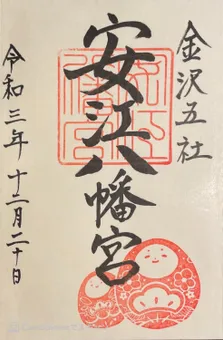 金沢五社
安江八幡宮
令和三年 十二月二十日